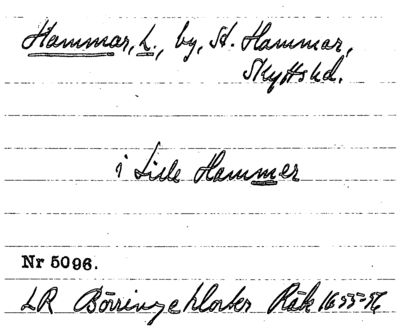 Hammar, L., by, St. Hammar,
Skytts hd.
i Lille Hammer
Nr 5096.
LR Börringeklosters Räk 1655-56